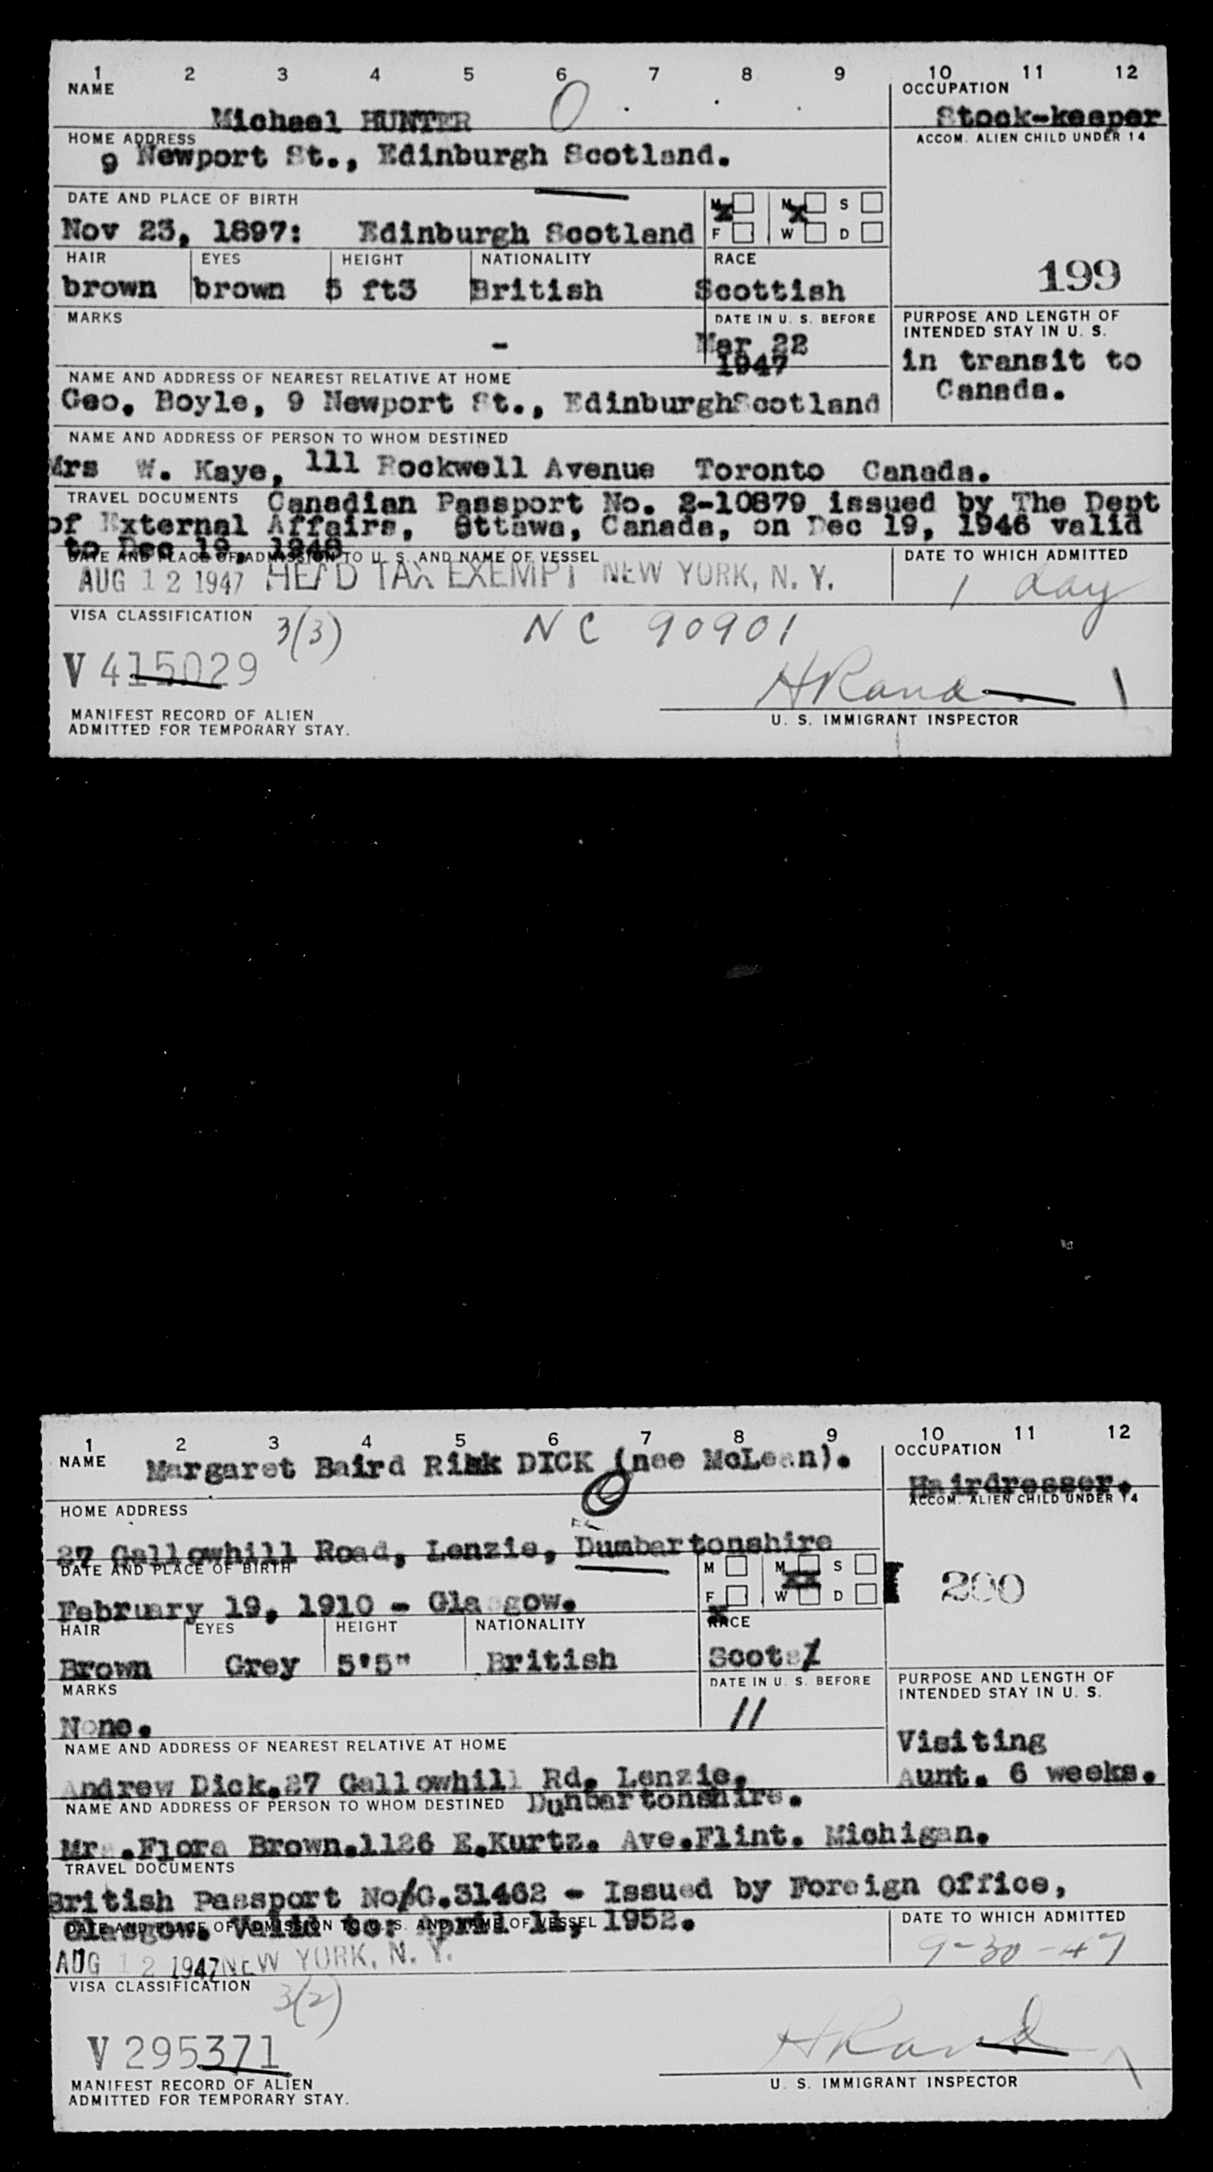 1 2 3 4 5 6 7 8 9 10 11 12
NAME OCCUPATION
Michael HUNTER O Stock-keeper
HOME ADDRESS ACCOM. ALIEN CHILD UNDER 14
9 Newport St., Edinburgh Scotland.
DATE AND PLACE OF BIRTH M M S
Nov 23, 1897: Edinburgh Scotland F W D
HAIR EYES HEIGHT NATIONALITY RACE
brown brown 5 ft3 British Scottish 199
MARKS DATE IN U. S. BEFORE PURPOSE AND LENGTH OF
INTENDED STAY IN U. S.
- Mar 22
1947 in transit to
Canada.
NAME AND ADDRESS OF NEAREST RELATIVE AT HOME
Geo. Boyle, 9 Newport St., EdinburghScotland
NAME AND ADDRESS OF PERSON TO WHOM DESTINED
Mrs W. Kaye, 111 Rockwell Avenue Toronto Canada.
TRAVEL DOCUMENTS Canadian Passport No. 2-10879 issued by The Dept
of External Affairs, Ottawa, Canada, on Dec 19, 1946 valid
to Dec 19, 1948
DATE AND PLACE OF ADMISSION TO U. S. AND NAME OF VESSEL DATE TO WHICH ADMITTED
AUG 12 1947 HEAD TAX EXEMPT NEW YORK, N. Y. 1 day
VISA CLASSIFICATION 3(3) NC 90901
V 415029 HRand
MANIFEST RECORD OF ALIEN U. S. IMMIGRANT INSPECTOR
ADMITTED FOR TEMPORARY STAY.
1 2 3 4 5 6 7 8 9 10 11 12
NAME OCCUPATION
Margaret Baird DICK (nee McLean). Hairdresser.
HOME ADDRESS ACCOM. ALIEN CHILD UNDER 14
27 Gallowhill Road, Lenzie, Dumbartonshire
DATE AND PLACE OF BIRTH M M S
February 19, 1910 - Glasgow. F W D 200
HAIR EYES HEIGHT NATIONALITY RACE
Brown Grey 5'5" British Scots
MARKS DATE IN U. S. BEFORE PURPOSE AND LENGTH OF
INTENDED STAY IN U. S.
None. // Visiting
NAME AND ADDRESS OF NEAREST RELATIVE AT HOME Aunt. 6 weeks.
Andrew Dick.27 Gallowhill Rd. Lenzie.
NAME AND ADDRESS OF PERSON TO WHOM DESTINED Dunbartonshire.
Mrs.Flora Brown.1126 E.Kurtz. Ave.Flint. Michigan.
TRAVEL DOCUMENTS
British Passport No/C.31462 - Issued by Foreign Office,
Glasgow. Valid to: April 11, 1952.
DATE AND PLACE OF ADMISSION TO U. S. AND NAME OF VESSEL DATE TO WHICH ADMITTED
AUG 12 1947 NEW YORK, N. Y. 9-30-47
VISA CLASSIFICATION 3(2)
V 295371 HRand
MANIFEST RECORD OF ALIEN U. S. IMMIGRANT INSPECTOR
ADMITTED FOR TEMPORARY STAY.